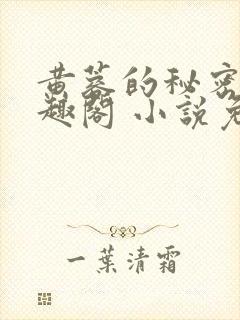 黄蓉的秘密
趣阁 小說免
一葉清霜